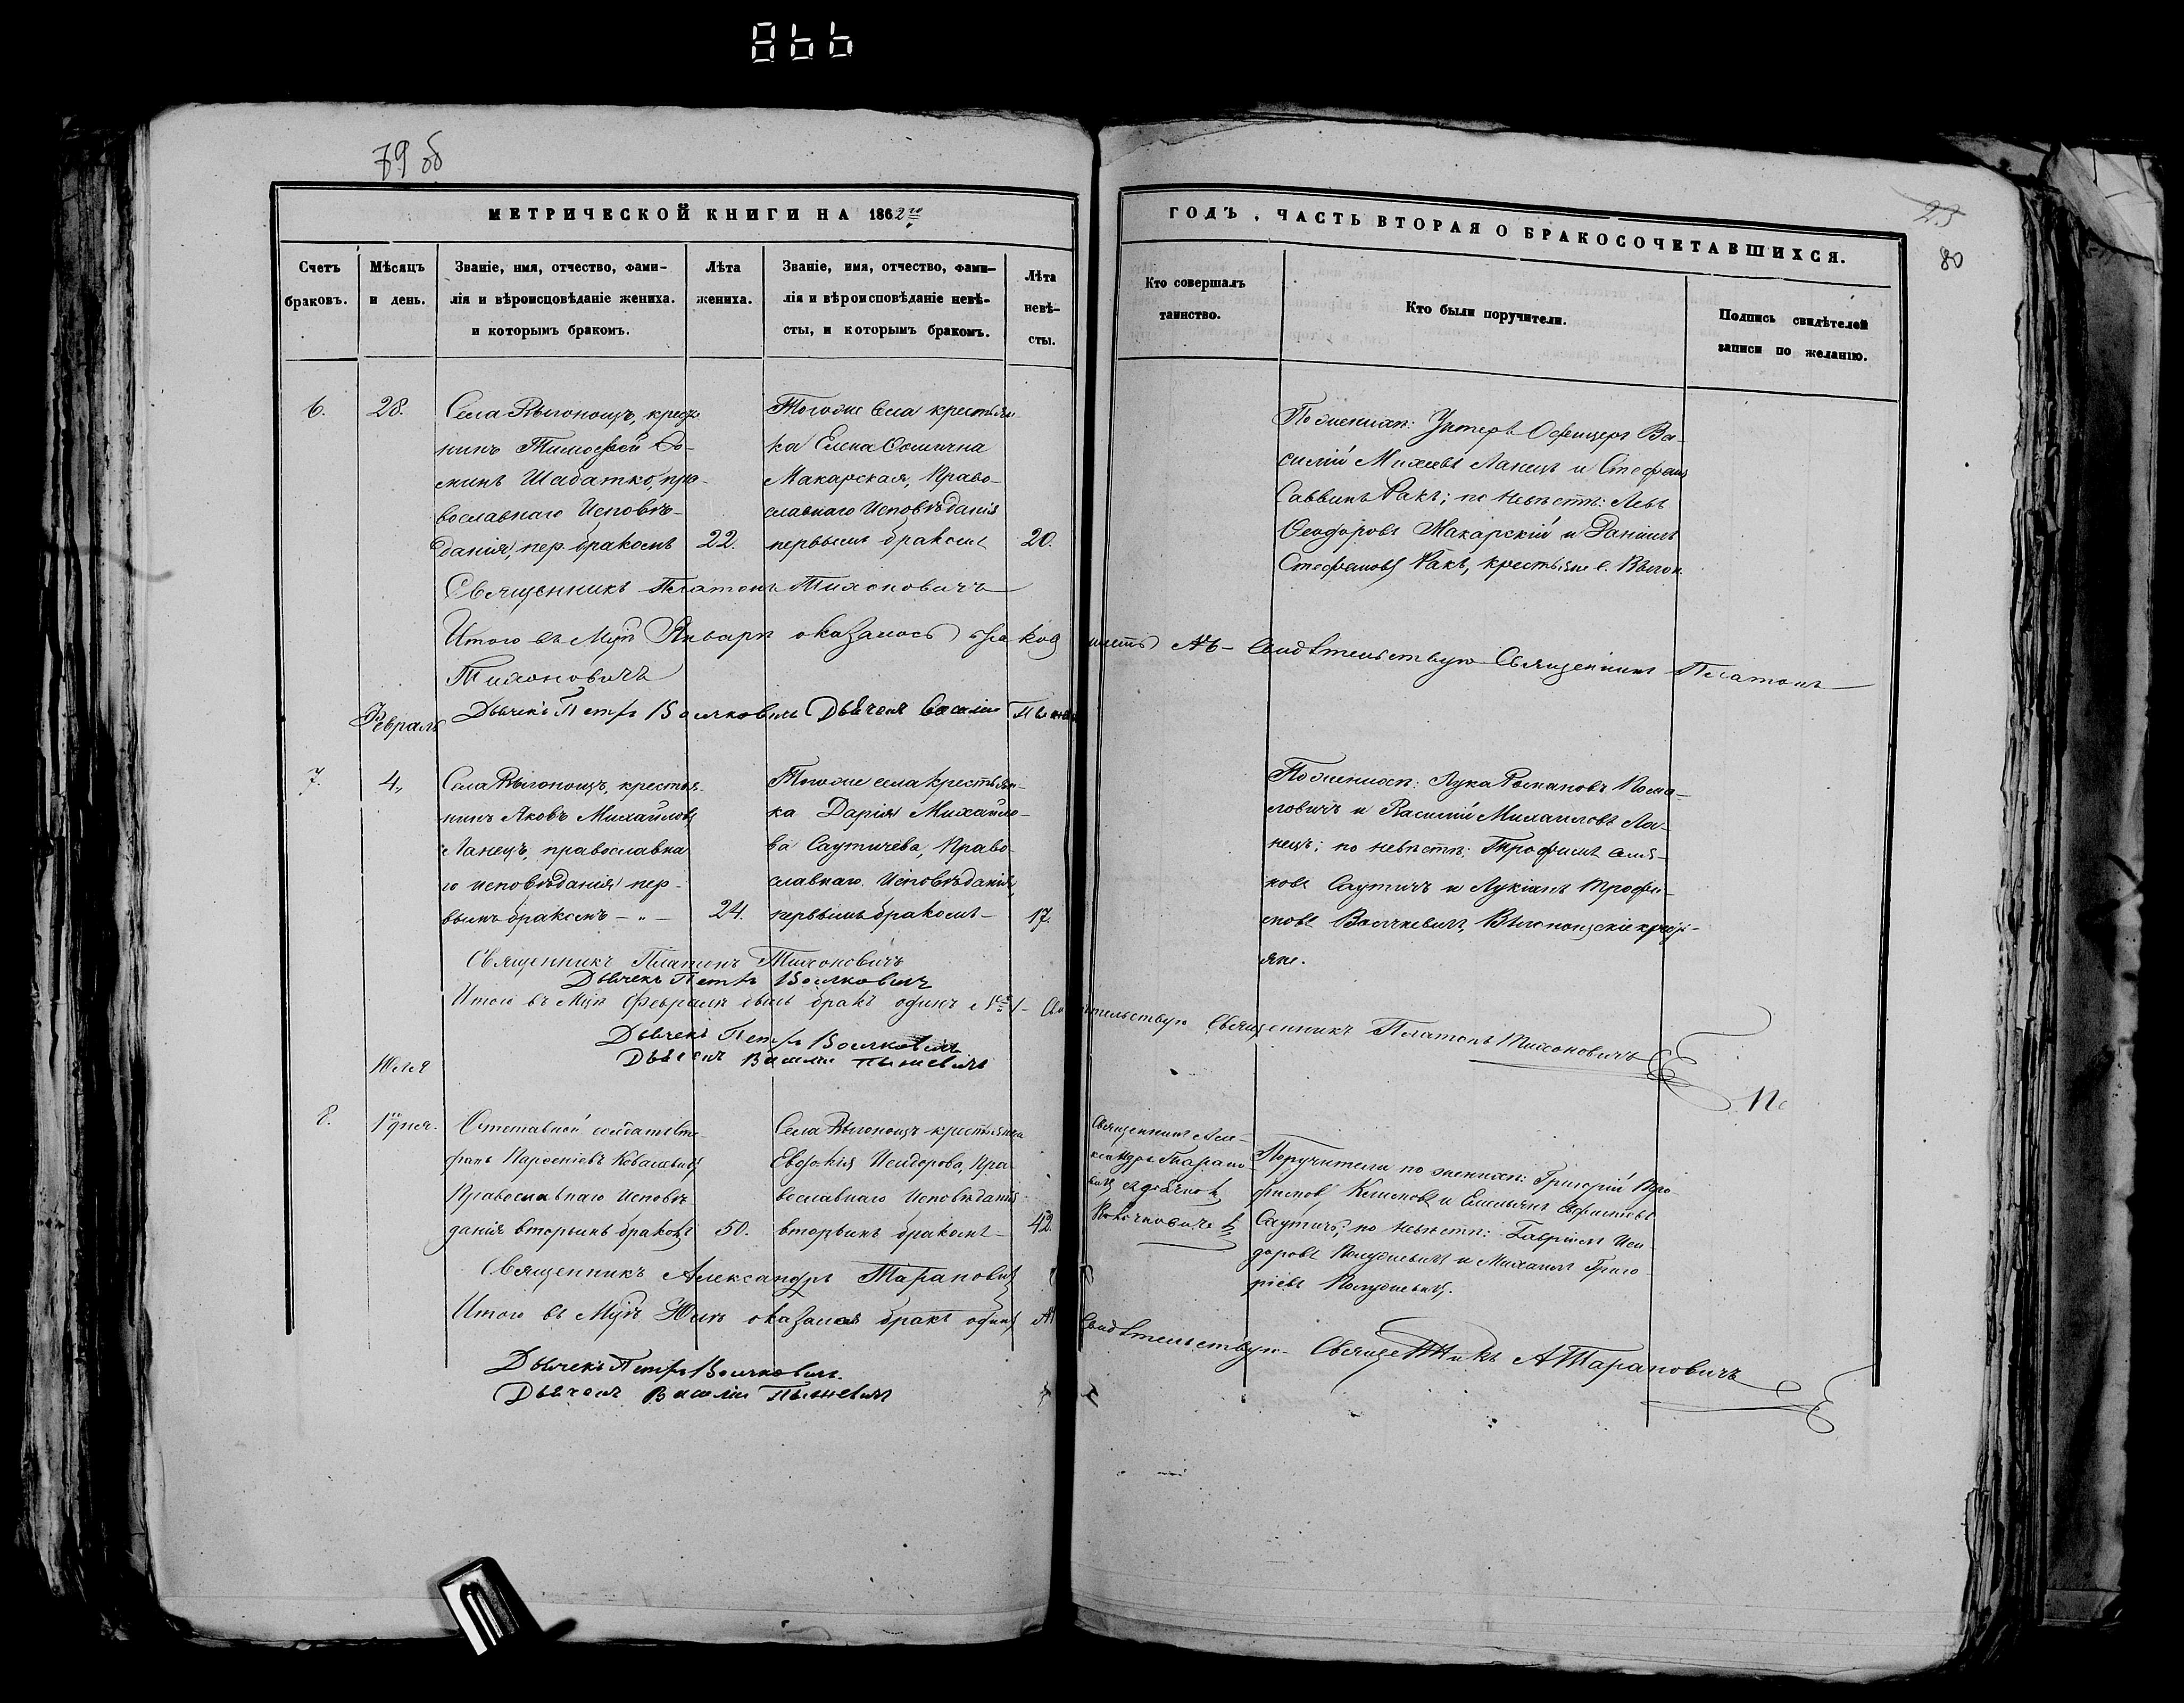 866
79 об
МЕТРИЧЕСКОЙ КНИГИ НА 1862го
ГОДЪ, ЧАСТЬ ВТОРАЯ О БРАКОСОЧЕТАВШИХСЯ.
23
80
Счетъ
браковъ.
Мѣсяцъ
и день.
Званіе, имя, отчество, фами-
лія и вѣроисповѣданіе жениха.
и которымъ бракомъ.
Лѣта
жениха.
Званіе, имя, отчество, фами-
лія и вѣроисповѣданіе невѣ-
сты, и которымъ бракомъ.
Лѣта
невѣ-
сты.
Кто совершалъ
таинство.
Кто были поручители.
Подпись свидѣтелей
записи по желанію.
6.
28.
Села Выгонощъ, кресть
нинъ Тимофей Ѳо-
минъ Шабатко, пра-
вославнаго Исповѣ-
данія, пер. бракомъ
22.
Тогоже Села крестьян-
ка Елена Ѳомична
Макарская, Право-
славнаго Исповѣданія
первымъ бракомъ
20.
По женихѣ: Унтеръ Офицеръ Ва-
силій Михеевъ Ланецъ и Стефанъ
Саввинъ Ракъ; по невѣстѣ: Левъ
Ѳеодоровъ Макарскій и Даніилъ
Стефановъ Ракъ, крестьяне с. Выгон.
Священникъ Платонъ Тихоновичъ
Итого въ Мцѣ Январѣ оказалось браковъ шесть №6 – Свидѣтельствую Священникъ Платонъ
Тихоновичъ
Дьячекъ Петръ Волчковичъ Дьячокъ Василій
Февраль
7.
4.
Села Выгонощъ, крестья-
нинъ Яковъ Михайловъ
Ланецъ, православна
го исповѣданія, пер-
вымъ бракомъ – „ –
24.
Тогоже села крестьян-
ка Дарія Михайло-
ва Саутичева, Право-
славнаго Исповѣданія,
первымъ бракомъ –
17.
По женихѣ: Лука Романовъ
и Василій Михаиловъ Ла-
нецъ; по невѣстѣ: Трофимъ
новъ Саутичъ и Лукіанъ Трофи-
мовъ Выгонощскіе кресть-
яне.
Священникъ Платонъ Тихоновичъ
Дьячекъ Петръ Волчковичъ
Итого въ Мцѣ Февралѣ былъ бракъ одинъ №1 – Свидѣтельствую Священникъ Платонъ Тихоновичъ
Дьячекъ Петръ Волчковичъ
Дьячокъ Василій
Юля
8.
1го дня.
Отставной солдатъ Сте-
фанъ Парѳеніевъ Ковалевичъ
Православнаго Исповѣ
данія вторымъ бракомъ
50.
Села Выгонощъ крестьянка
Евдокія Исидорова, Пра-
вославнаго Исповѣданія
вторымъ бракомъ –
42.
Священникъ Але-
ксандръ Тарано-
вичъ съ дьячкомъ
Волчковичемъ
Поручители по женихѣ: Григорій Тро
фимовъ и Емельянъ
Саутичъ; по невѣстѣ: Гавріилъ Иси-
доровъ Полуяневичъ и Михаилъ Григо
ріевъ Полуяневичъ.
Священникъ Александръ Тарановичъ
Итого въ Мцѣ Юлѣ оказался бракъ одинъ №1 Свидѣтельствую – Священникъ А Тарановичъ
Дьячекъ Петръ Волчковичъ.
Дьячокъ Василій